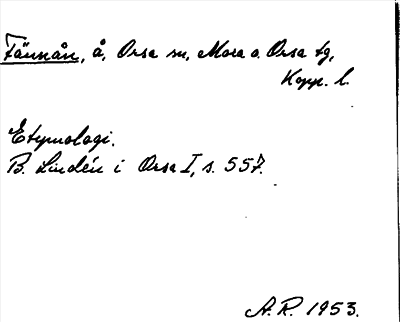 Fännån, å, Orsa sn, Mora o. Orsa tg,
Kopp. l.
Etymologi.
B. Lindén i Orsa I, s. 557.
A. R. 1953.